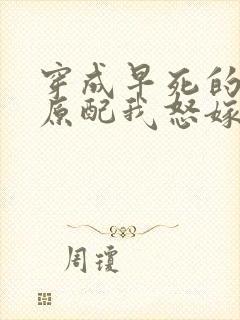 穿成早死的
原配我怒嫁
周琼